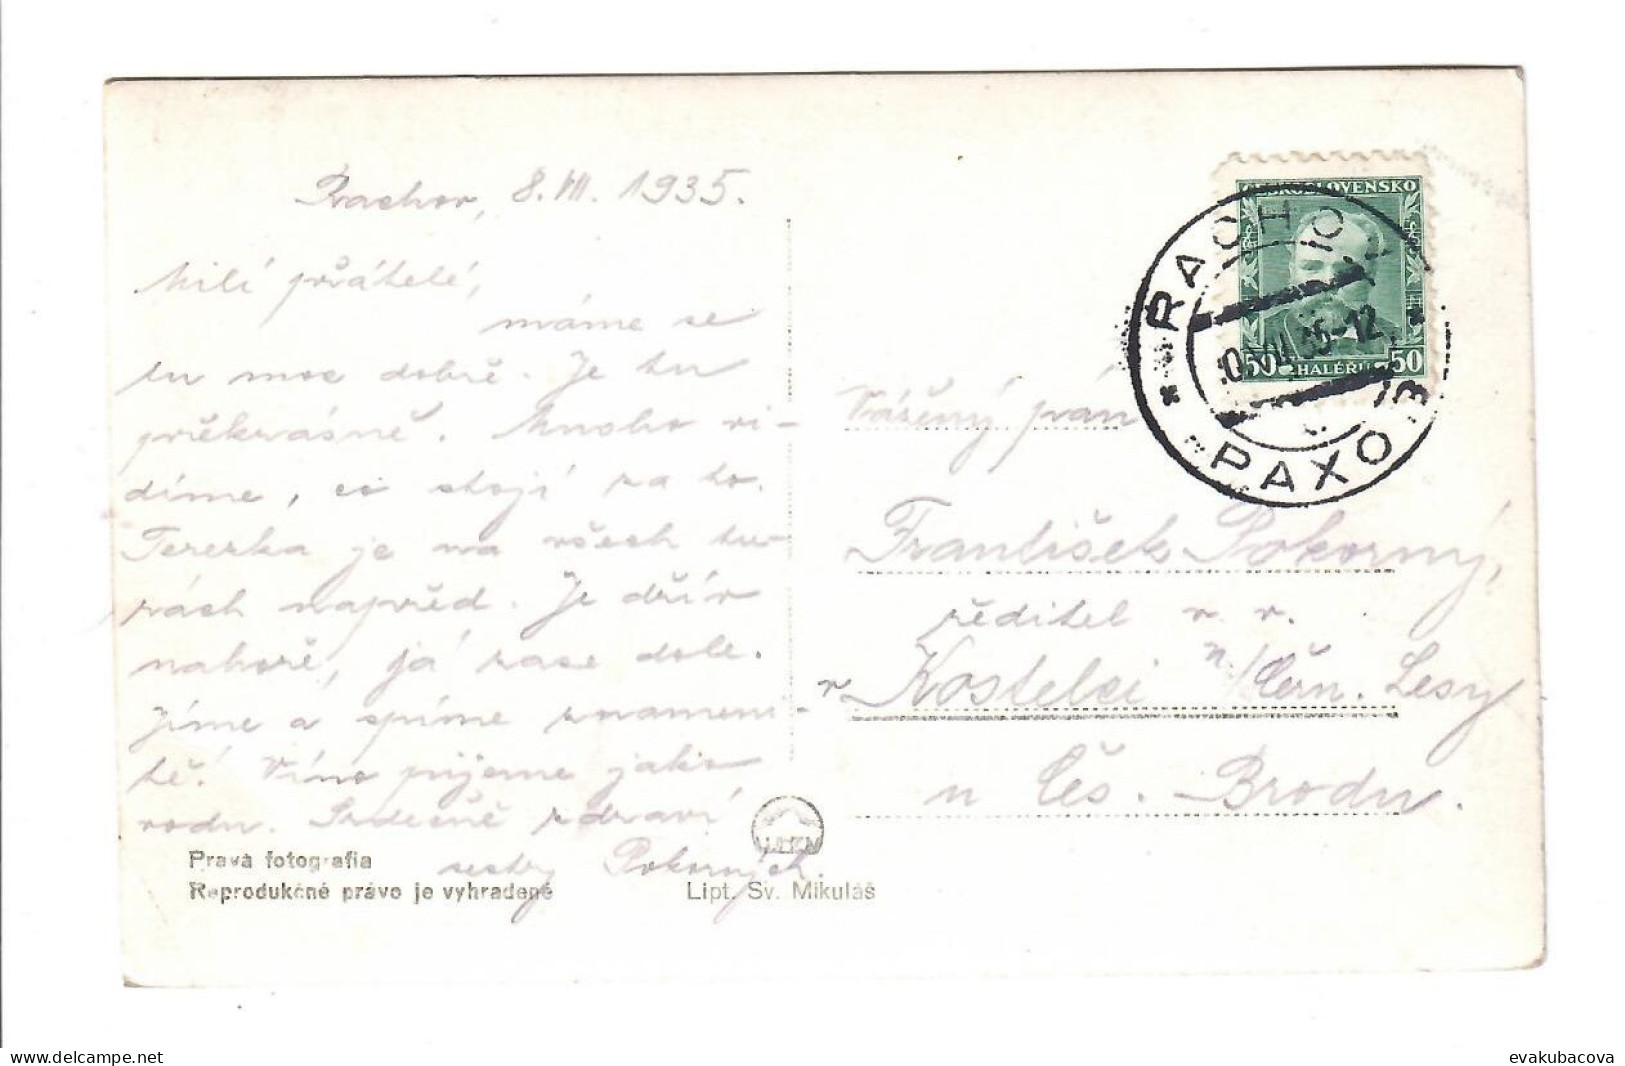 Rachov, 8. VII. 1935.
Milí přátelé,
máme se
tu moc dobře. Je tu
překrásně. Mnoho vi-
díme, co stojí za to.
Terezka je na všech tu-
rách napřed. Je dřív
nahoře, já zase dole.
Jíme a spíme znameni-
tě! Víno pijeme jako
vodu. Srdečně zdraví
Pokorných.
Pravá fotografia
Reprodukčné právo je vyhradené
Lipt. Sv. Mikuláš
ČESKOSLOVENSKO
50 HALÉŘŮ 50
RACHOV
РАХОВ
Vážený pán
František Pokorný,
ředitel v. v.
v Kostelci n/Čern. Lesy
u Čes. Brodu.
www.delcampe.net
evakubacova